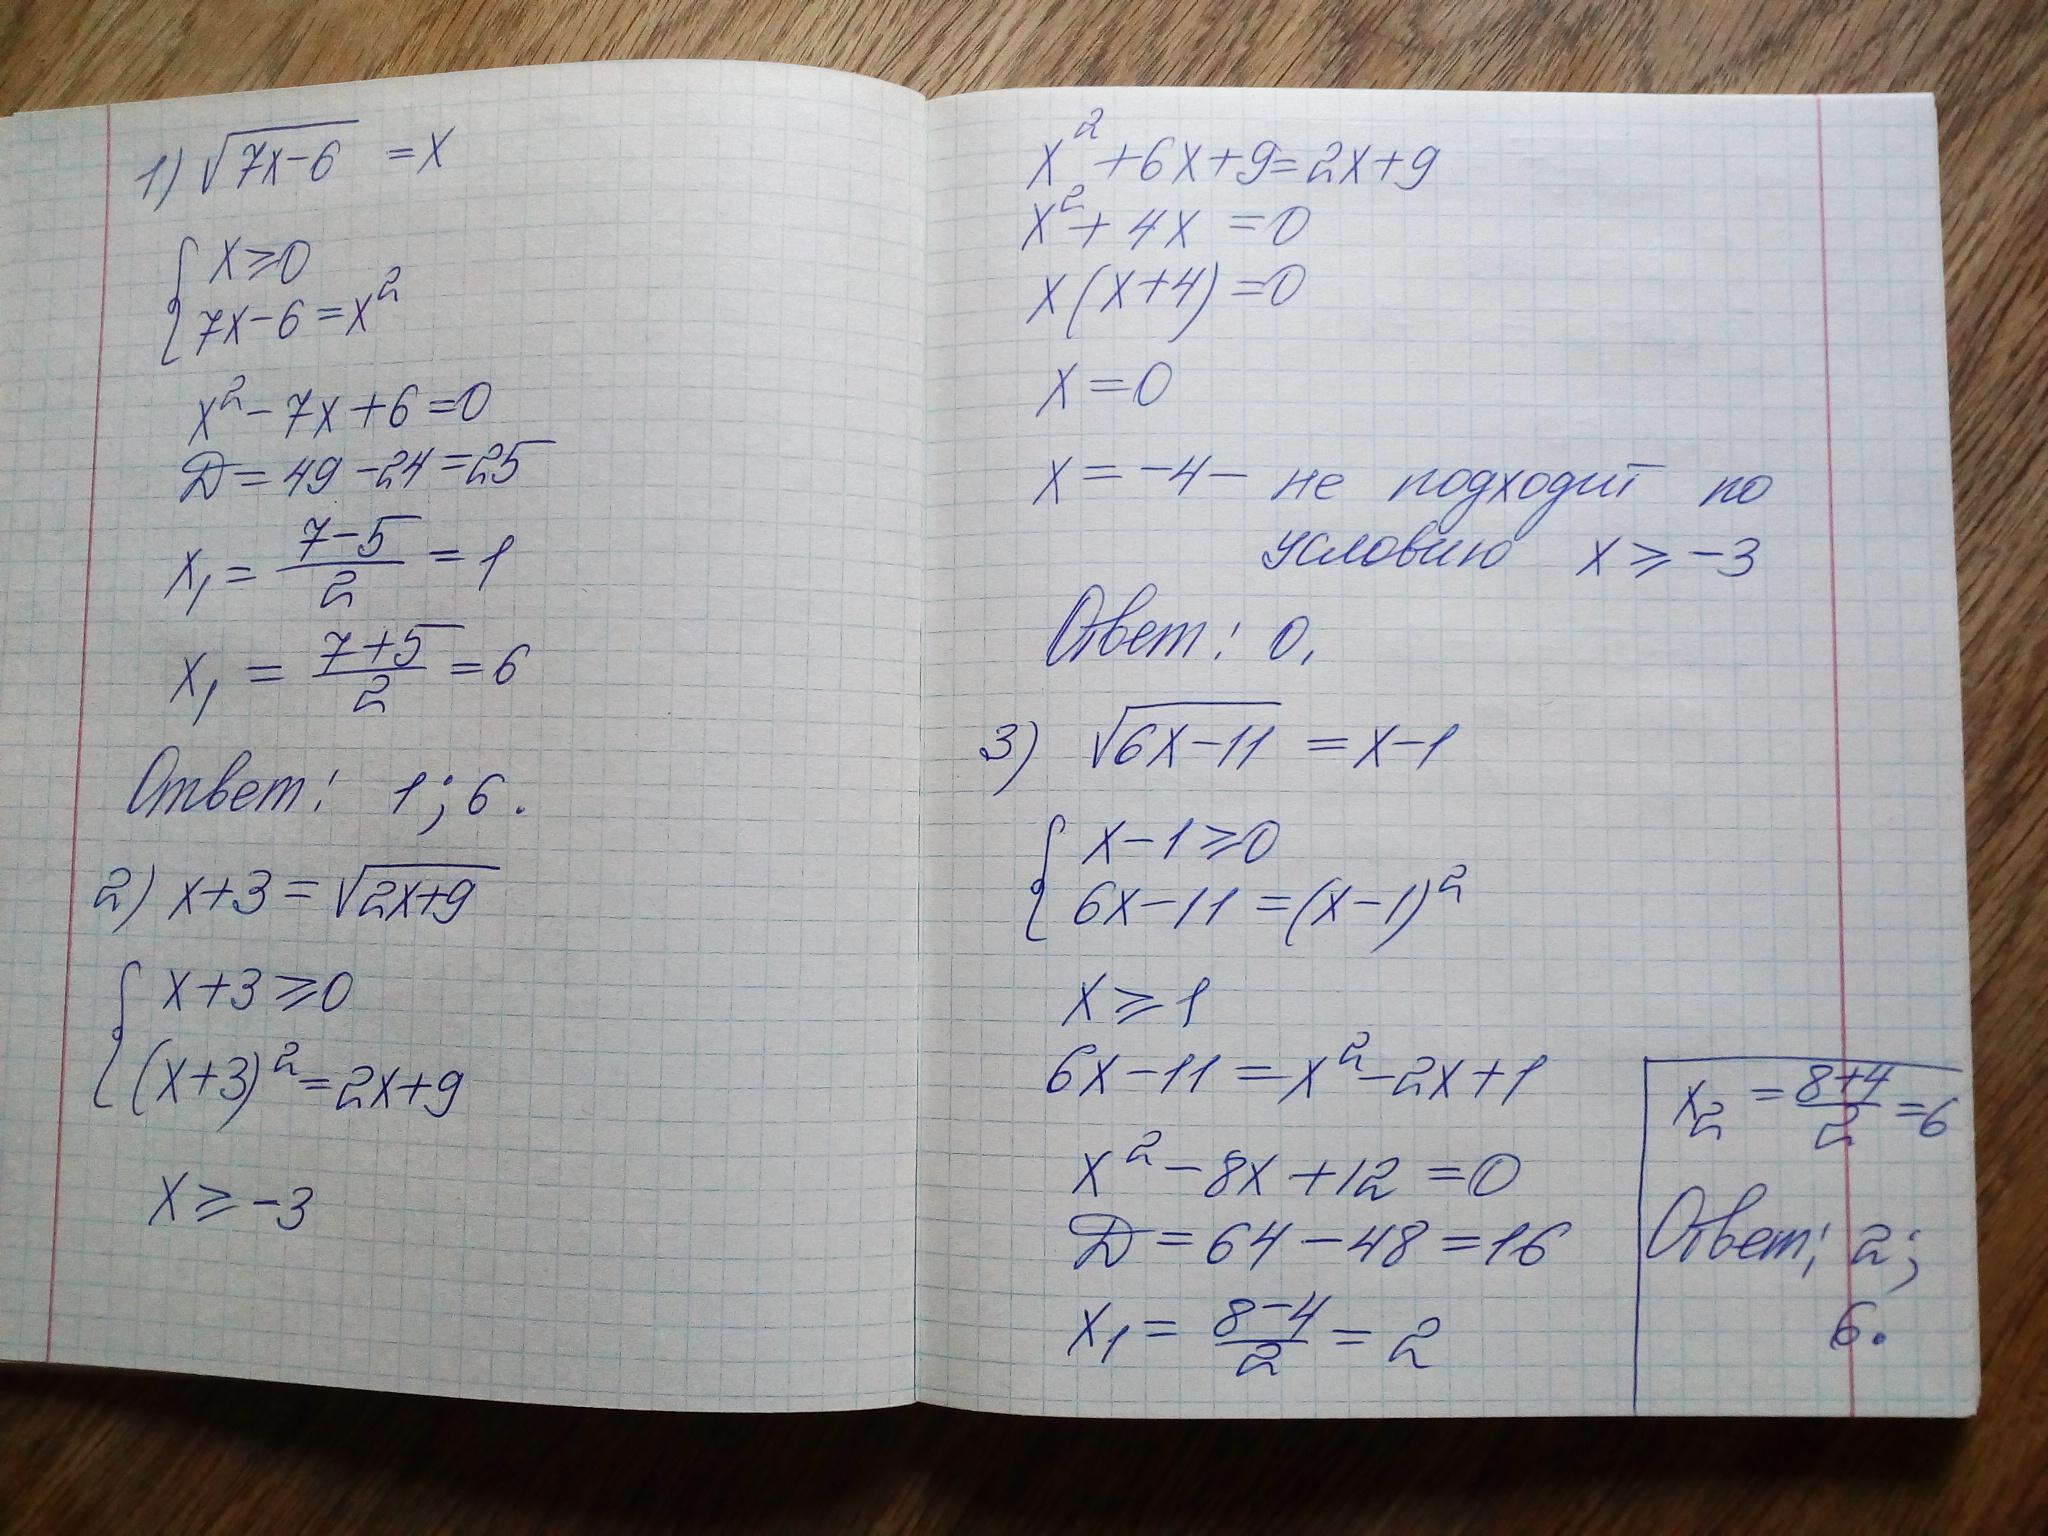 1) √7x-6 = x
{ x ⩾ 0
7x-6 = x²
x² - 7x + 6 = 0
D = 49 - 24 = 25
x₁ = (7-5)/2 = 1
x₁ = (7+5)/2 = 6
Ответ: 1; 6.
2) x+3 = √2x+9
{ x+3 ⩾ 0
(x+3)² = 2x+9
x ⩾ -3
x² + 6x + 9 = 2x + 9
x² + 4x = 0
x(x+4) = 0
x = 0
x = -4 - не подходит по
условию x ⩾ -3
Ответ: 0.
3) √6x-11 = x-1
{ x-1 ⩾ 0
6x-11 = (x-1)²
x ⩾ 1
6x-11 = x² - 2x + 1
x² - 8x + 12 = 0
D = 64 - 48 = 16
x₁ = (8-4)/2 = 2
x₂ = (8+4)/2 = 6
Ответ: 2;
6.